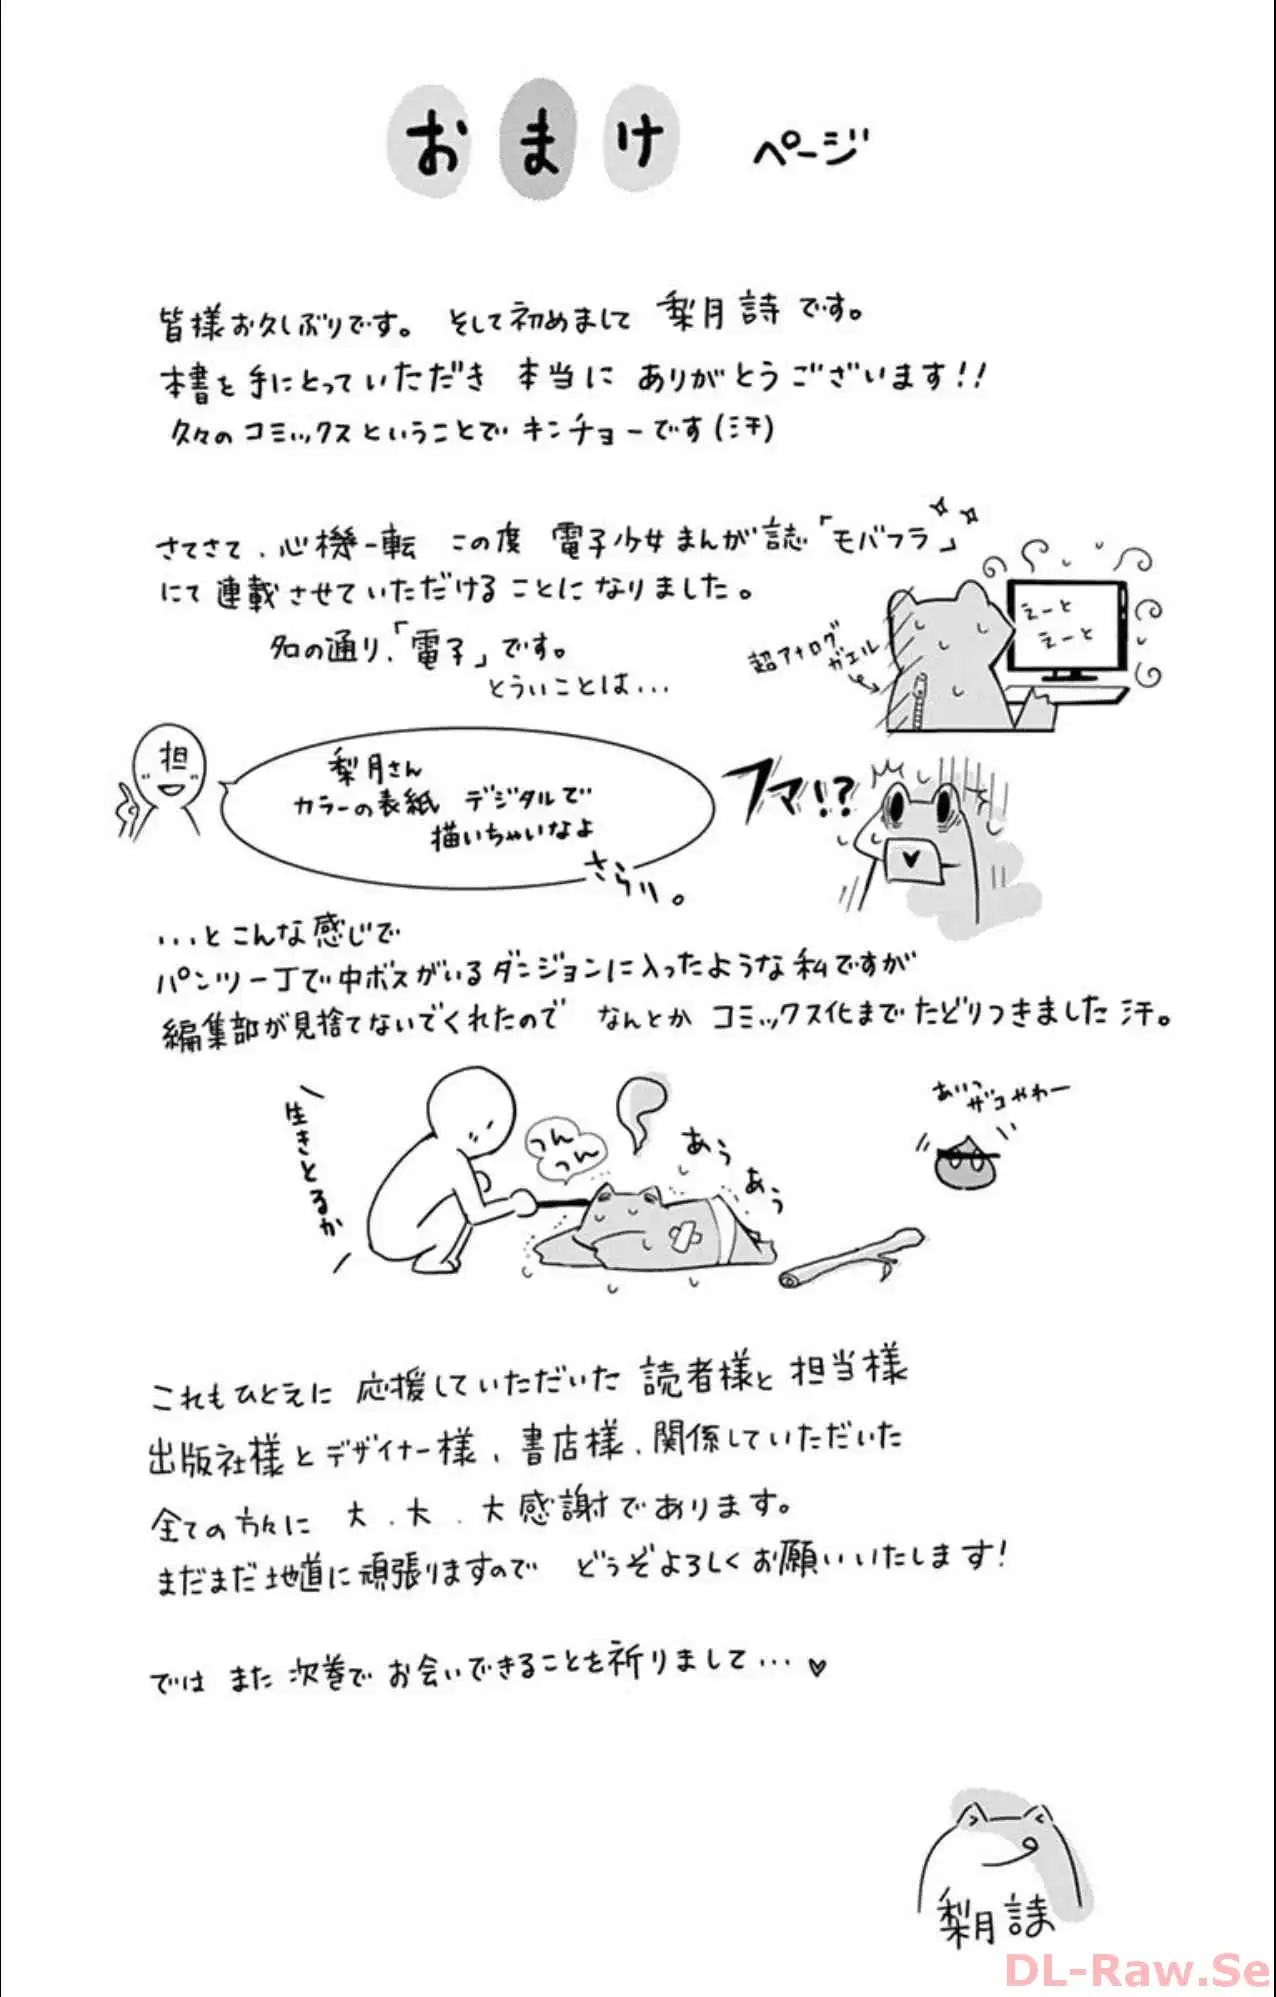 おまけ ページ
皆様お久しぶりです。 そして初めまして 梨月詩です。
本書を手にとっていただき 本当に ありがとうございます!!
久々のコミックスということで キンチョーです(汗)
さてさて、心機一転 この度 電子少女まんが誌「モバフラ」
にて連載させていただけることになりました。
名の通り、「電子」です。
とういことは...
えーと
えーと
超アナログ
ガエル
担
梨月さん
カラーの表紙 デジタルで
描いちゃいなよ
さらり。
フマ!?
...とこんな感じで
パンツ一丁で中ボスがいるダンジョンに入ったような私ですが
編集部が見捨てないでくれたので なんとか コミックス化までたどりつきました 汗。
生きとるか
つん
つん
あう
あう
あいつ
ザコやわー
これもひとえに 応援していただいた 読者様と 担当様
出版社様とデザイナー様、書店様、関係していただいた
全ての方々に 大、大、大感謝であります。
まだまだ地道に頑張りますので どうぞよろしくお願いいたします!
では また 次巻で お会いできることを祈りまして...♥
梨月詩
DL-Raw.Se